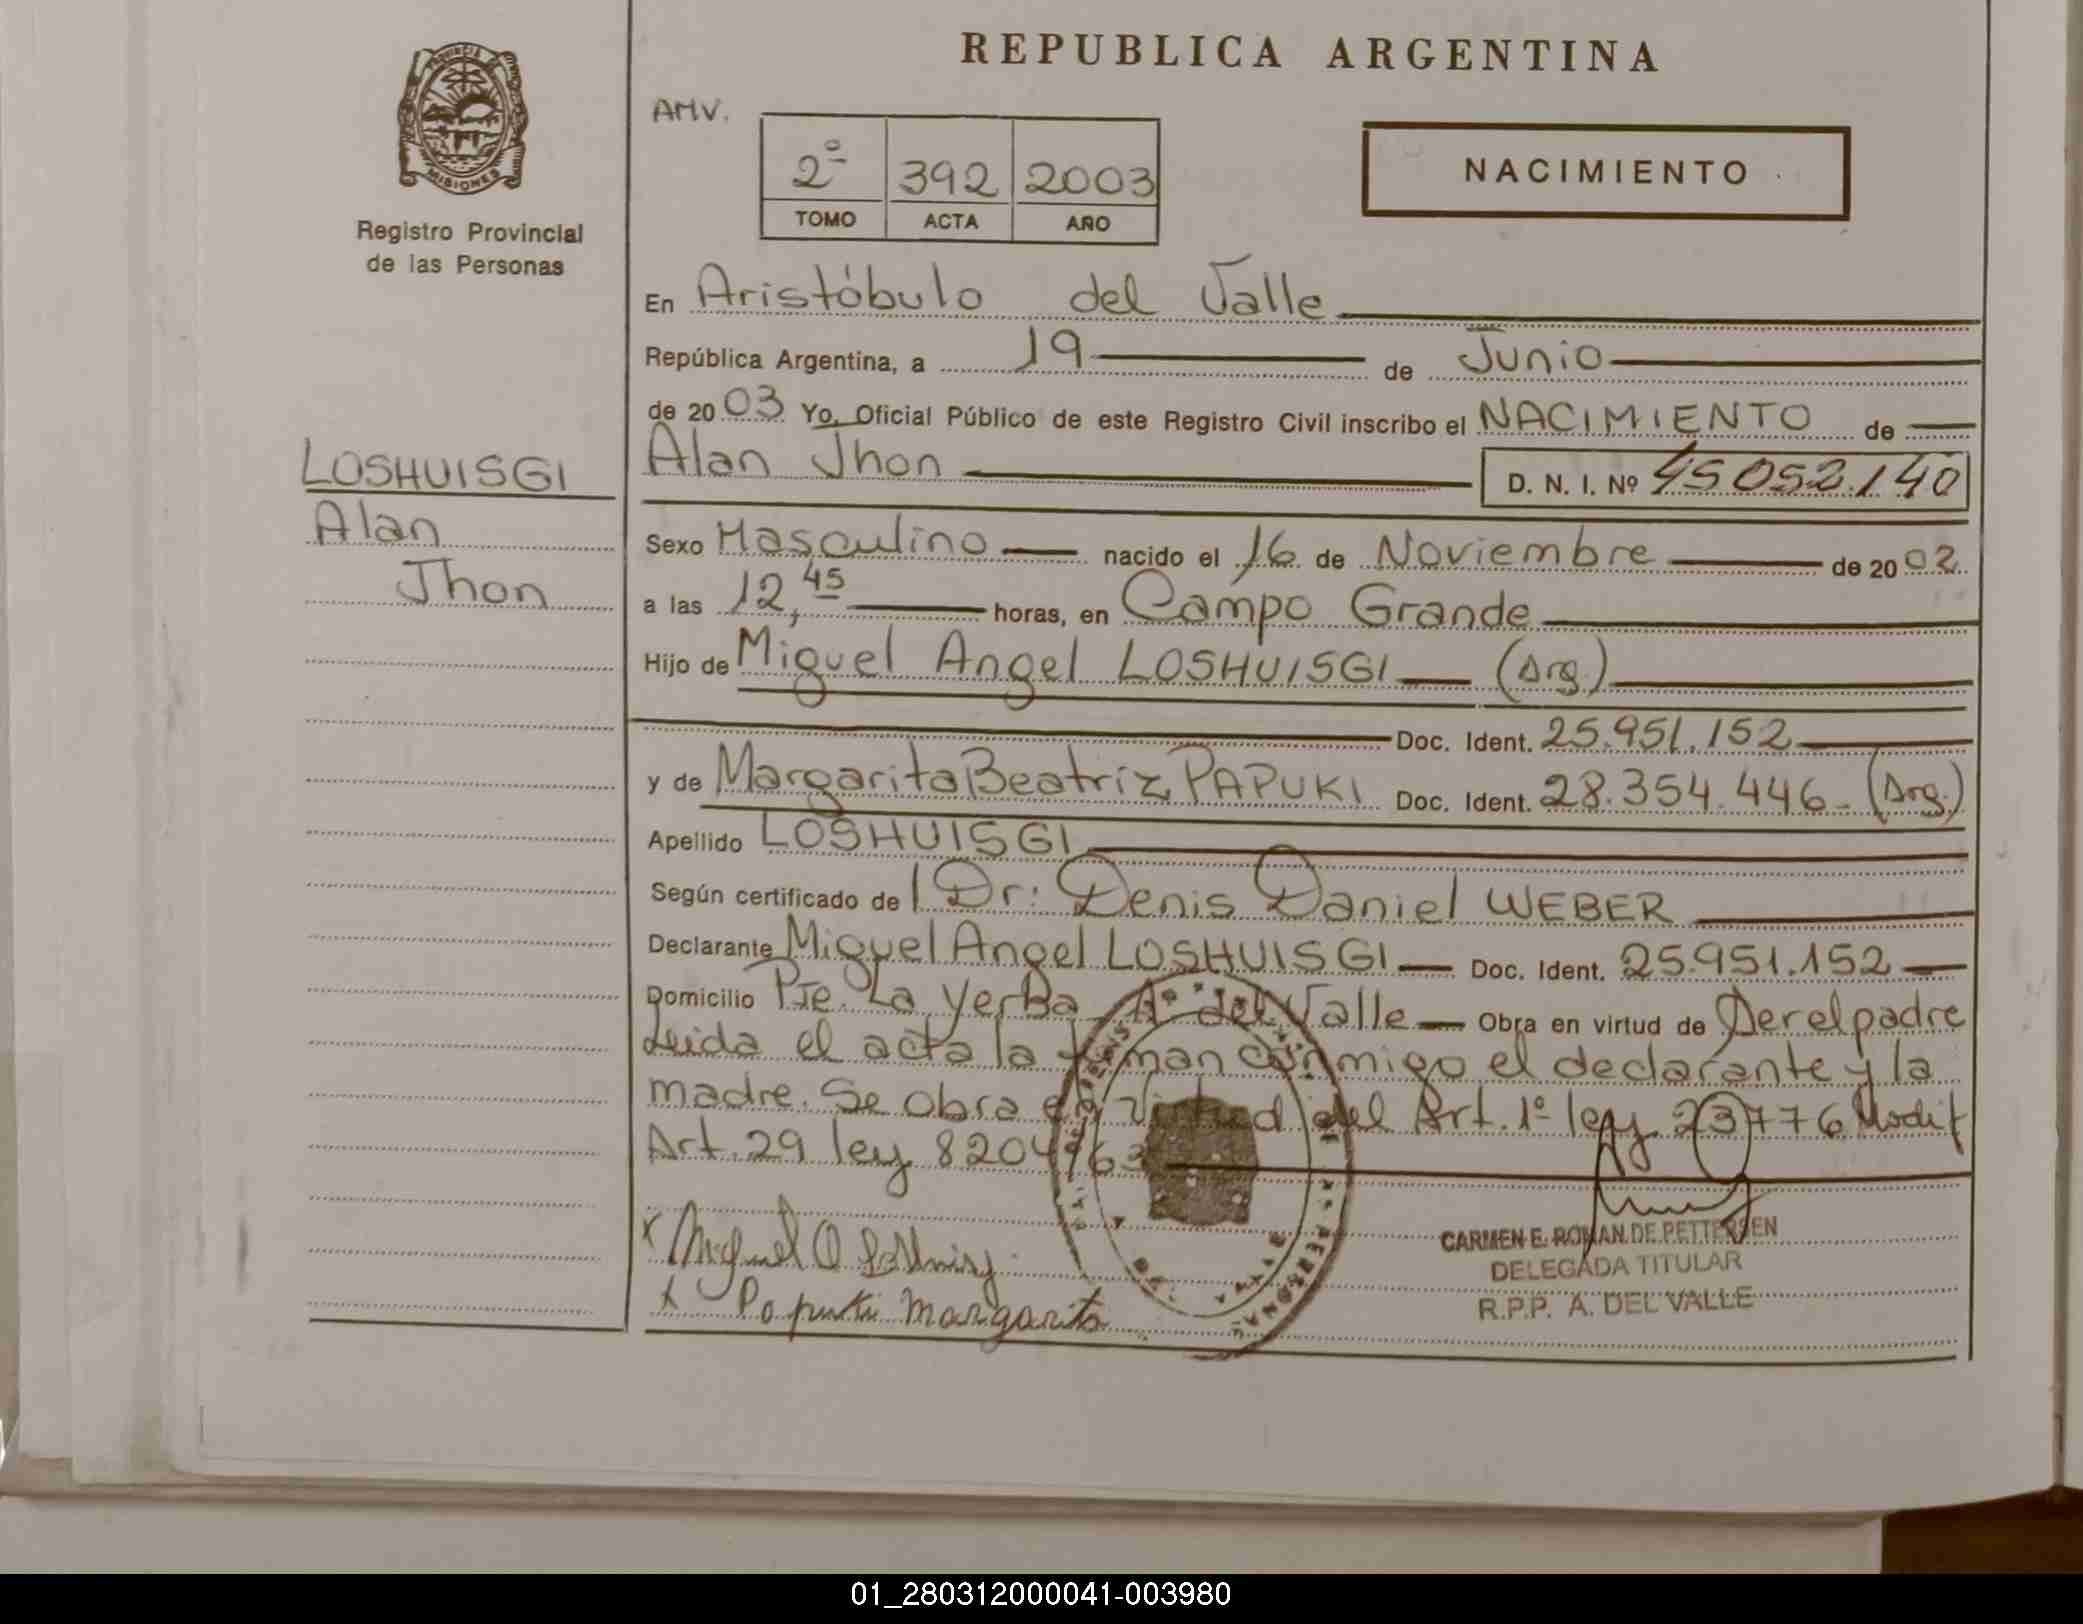 REPUBLICA ARGENTINA
MISIONES
Registro Provincial
de las Personas
AMV.
2º 392 2003
TOMO ACTA AÑO
NACIMIENTO
En Aristóbulo del Valle
República Argentina, a 19 de Junio
de 2003 Yo, Oficial Público de este Registro Civil inscribo el NACIMIENTO de
Alan Jhon D. N. I. Nº 45052.140
LOSHUISGI
Alan
Jhon
Sexo Masculino nacido el 16 de Noviembre de 2002
a las 12,45 horas, en Campo Grande
Hijo de Miguel Angel LOSHUISGI (Arg.)
Doc. Ident. 25.951.152
y de Margarita Beatriz PAPUKI Doc. Ident. 28.354.446 (Arg.)
Apellido LOSHUISGI
Según certificado de Dr: Denis Daniel WEBER
Declarante Miguel Angel LOSHUISGI Doc. Ident. 25.951.152
Domicilio Pje. La Yerba Aº del Valle Obra en virtud de Ser el padre
Leida el acta la firman conmigo el declarante y la
madre. Se obra en virtud del Art. 1º ley 23776 Modif
Art. 29 ley 8204/63
x Miguel A
x Papuki Margarita
CARMEN E. ROMAN DE PETTERSEN
DELEGADA TITULAR
R.P.P. A. DEL VALLE
01_280312000041-003980